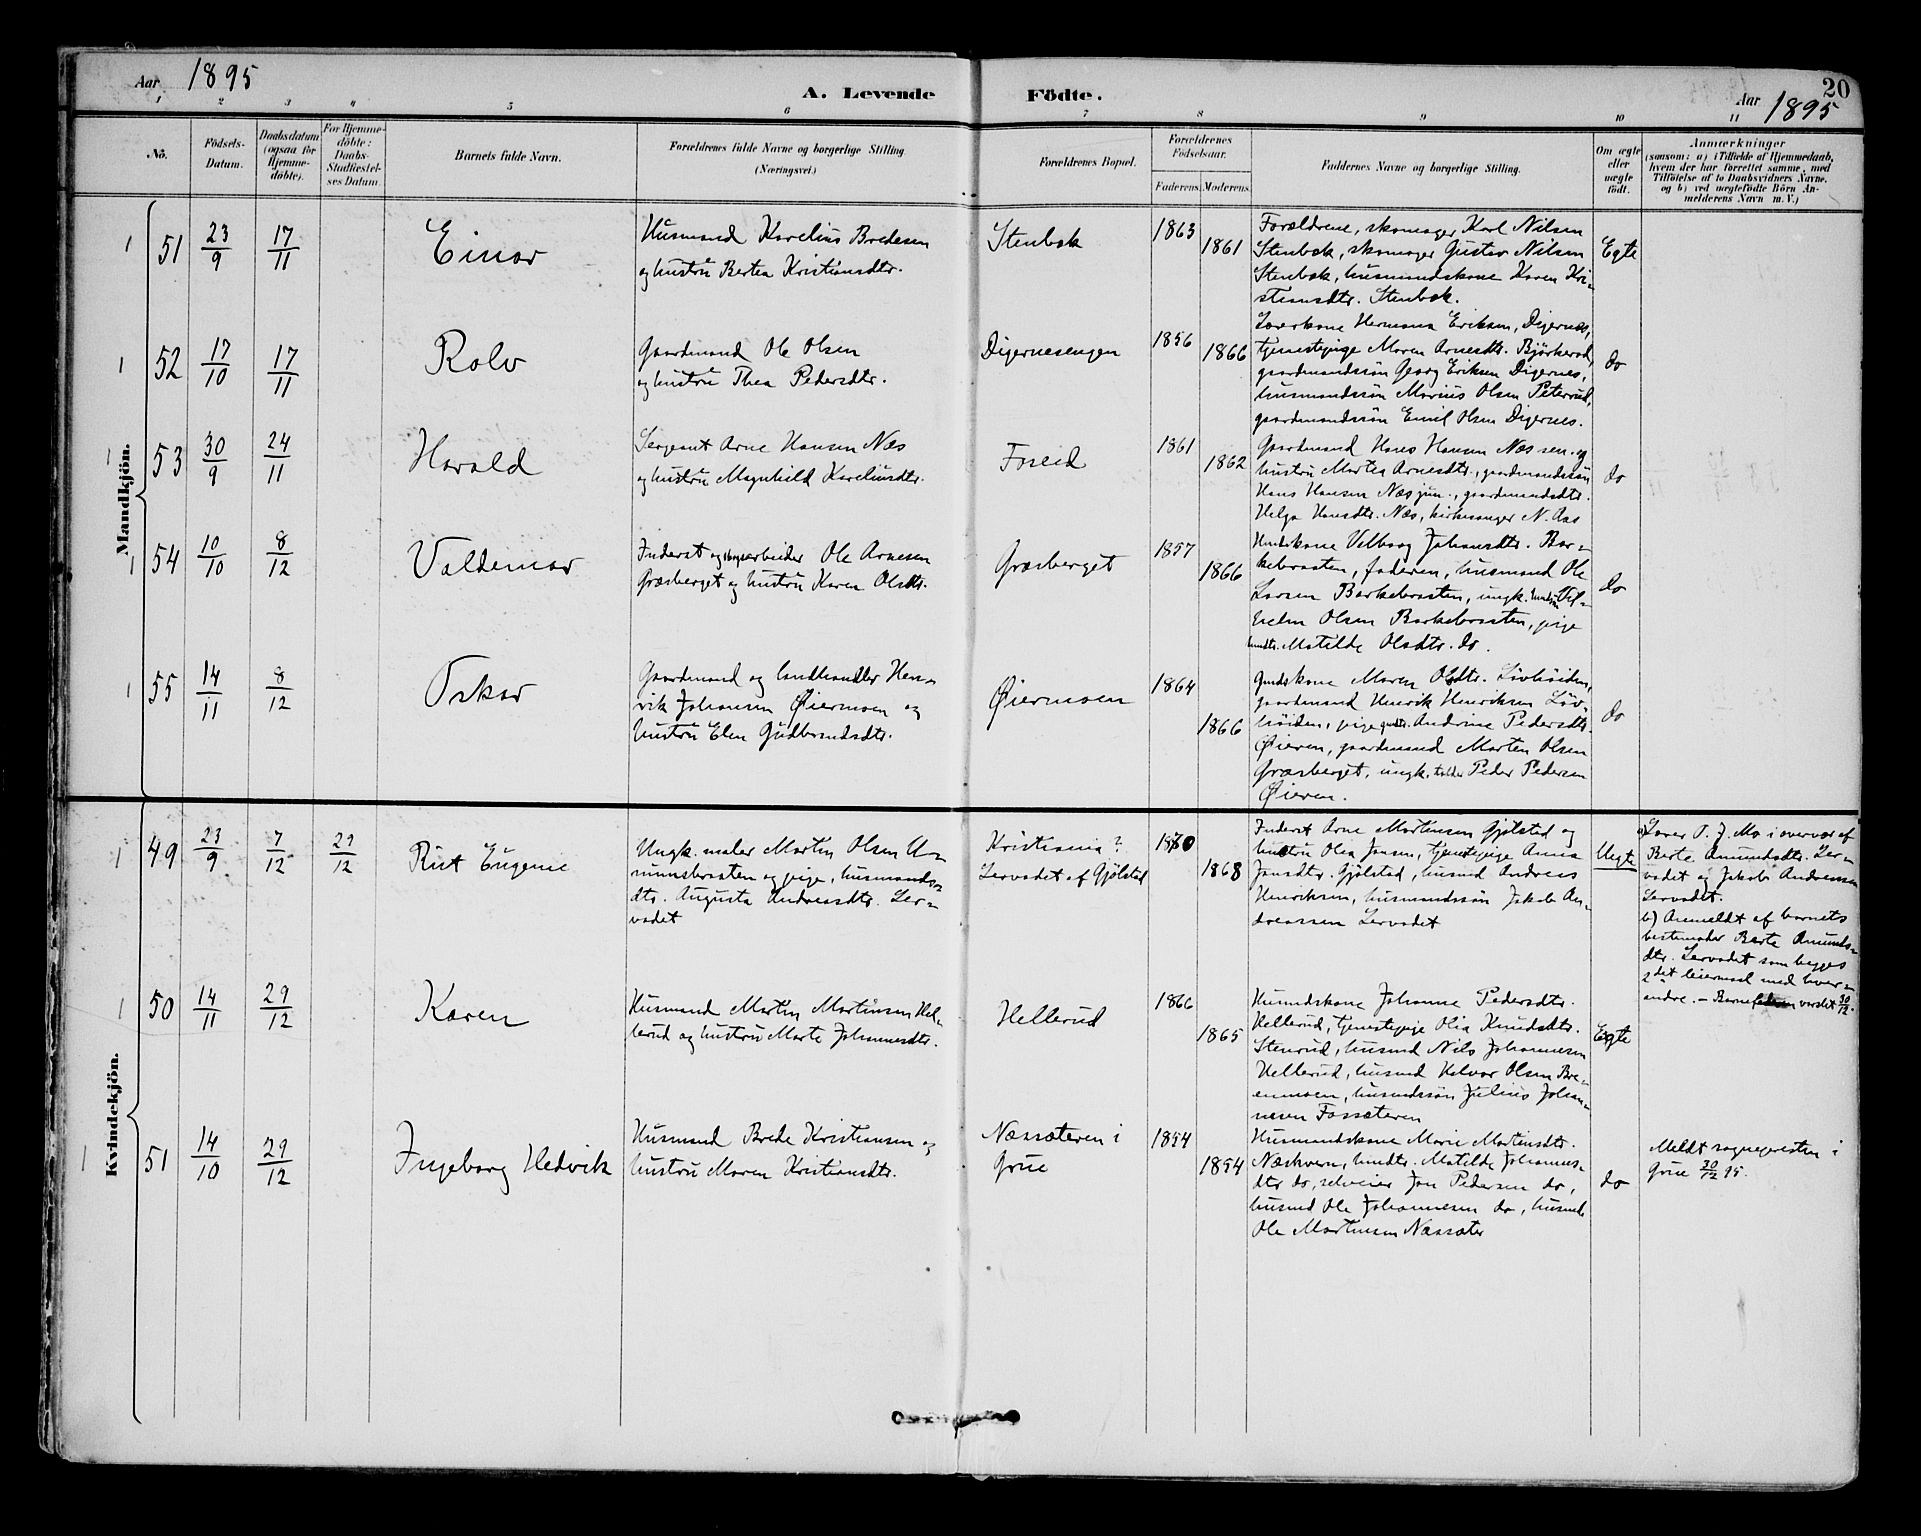 Aar 1895
A. Levende Födte.
Aar 1895
20
1 2 3 4 5 6 7 8 9 10 11
No.
Födsels-Datum.
Daabsdatum (ogsaa for Hjemmedöbte).
For Hjemmedöbte: Daabs-Stadfæstelses Datum.
Barnets fulde Navn.
Forældrenes fulde Navne og borgerlige Stilling (Næringsvei.)
Forældrenes Bopæl.
Forældrenes Födselsaar.
Faderens. Moderens.
Faddernes Navne og borgerlige Stilling.
Om ægte eller uægte födt.
Anmærkninger
(saasom: a) i Tilfælde af Hjemmedaab,
hvem der har forrettet samme, med
Tilföielse af to Daabsvidners Navne.
og b) ved uægtefödte Börn An-
melderens Navn m. V.)
Mandkjön.
1 51 23/9 17/11 Einar
Husmand Karelius Bredesen
og hustru Bertea Kristiansdtr.
Stenbæk 1863 1861
Forældrene, skomager Karl Nilsen
Stenbæk, skomager Gustav Nilsen
Stenbæk, husmandskone Karen Kri-
stiansdtr. Stenbæk.
Egte
1 52 17/10 17/11 Rolv
Gaardmand Ole Olsen
og hustru Thea Pedersdtr.
Digernesengen 1856 1866
Lærerkone Hermana Eriksen, Digernes,
tjenestepige Maren Arnesdtr. Björkerud,
gaardmandssön Georg Eriksen Digernes,
husmandssön Marius Olsen Peterrud,
gaardmandssön Emil Olsen Digernes.
do
1 53 30/9 24/11 Harald
Sergeant Arne Hansen Næs
og hustru Magnhild Kareliusdtr.
Foseid 1861 1862
Gaardmand Hans Hansen Næs sen. og
hustru Martea Arnesdtr., gaardmandssön
Hans Hansen Næs jun., gaardmandsdtr.
Helga Hansdtr. Næs, kirkesanger N. Aas
do
1 54 10/10 8/12 Valdemar
Inderst og arbeider Ole Arnesen
Græsberget og hustru Karen Olsdtr.
Græsberget 1857 1866
Husmdskone Velborg Johansdtr. Bar-
kebraaten, faderen, husmand Ole
Larsen Barkebraaten, ungk. Vil-
helm Olsen Barkebraaten, pige
Matilde Olsdtr. do.
do
1 55 14/11 8/12 Oskar
Gaardmand og landhandler Hen-
rik Johansen Øiermoen og
hustru Elen Gudbrandsdtr.
Øiermoen 1864 1866
Gmdskone Maren Olsdtr. Lövhöiden,
gaardmand Henrik Henriksen Löv-
höiden, pige Andrine Pedersdtr.
Øieren, gaardmand Morten Olsen
Græsberget, ungk. Peder Pedersen
Øieren.
do
Kvindekjön.
1 49 23/9 7/12 29/12 Rut Eugenie
Ungk. maler Martin Olsen A-
mundsbraaten og pige, husmands-
dtr. Augusta Andreasdtr. Ler-
vadet
Kristiania?
Lervadet af Gjölstad
1870 1868
Inderst Arne Martinsen Gjölstad og
hustru Olea Jansen, tjenestepige Anna
Jansdtr. Gjölstad, husmd Andreas
Henriksen, husmandssön Jakob An-
dreassen Lervadet
Uegte
a) Lærer P. J. Mo i overvær af
Berte Amundsdtr. Ler-
vadet og Jakob Andreassen
Lervadet.
b) Anmeldt af barnets
bestemoder Berte Amunds-
dtr. Lervadet som begges
2det leiermaal med hver-
andre. – Barnefaderen varslet 30/12.
1 50 14/11 29/12 Karen
Husmand Martin Martinsen Hel-
lerud og hustru Marte Johannesdtr.
Hellerud 1866 1865
Husmdskone Johanne Pedersdtr.
Hellerud, tjenestepige Olia Knudsdtr.
Stenrud, husmd Nils Johannesen
Hellerud, husmd Halvor Olsen Bre-
enmoen, husmdssön Julius Johan-
nesen Fossæteren
Egte
1 51 14/10 29/12 Ingeborg Hedvik
Husmand Brede Kristiansen og
hustru Maren Kristiansdtr.
Næssæteren i
Grue
1854 1854
Husmandskone Marie Martinsdtr.
Næskvern, husmdtr. Matilde Johannes-
dtr do, selveier Jon Pedersen do,
husmd Ole Johannesen do, husmd
Ole Martinsen Næssæter
do
Meldt sognepresten i
Grue 30/12 95.